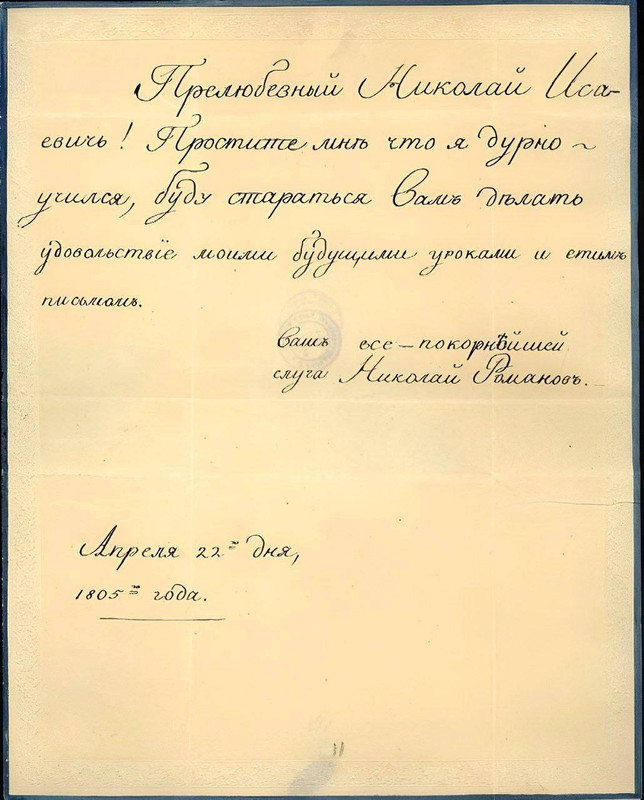 Прелюбезный Николай Иса-
евичь! Простите мнѣ что я дурно ~
учился, буду стараться Вамъ дѣлать
удовольствіе моими будущими уроками и етимъ
письмомъ.
Вашъ все-покорнѣйшей
слуга Николай Романовъ.
Апреля 22го дня,
1805го года.
11